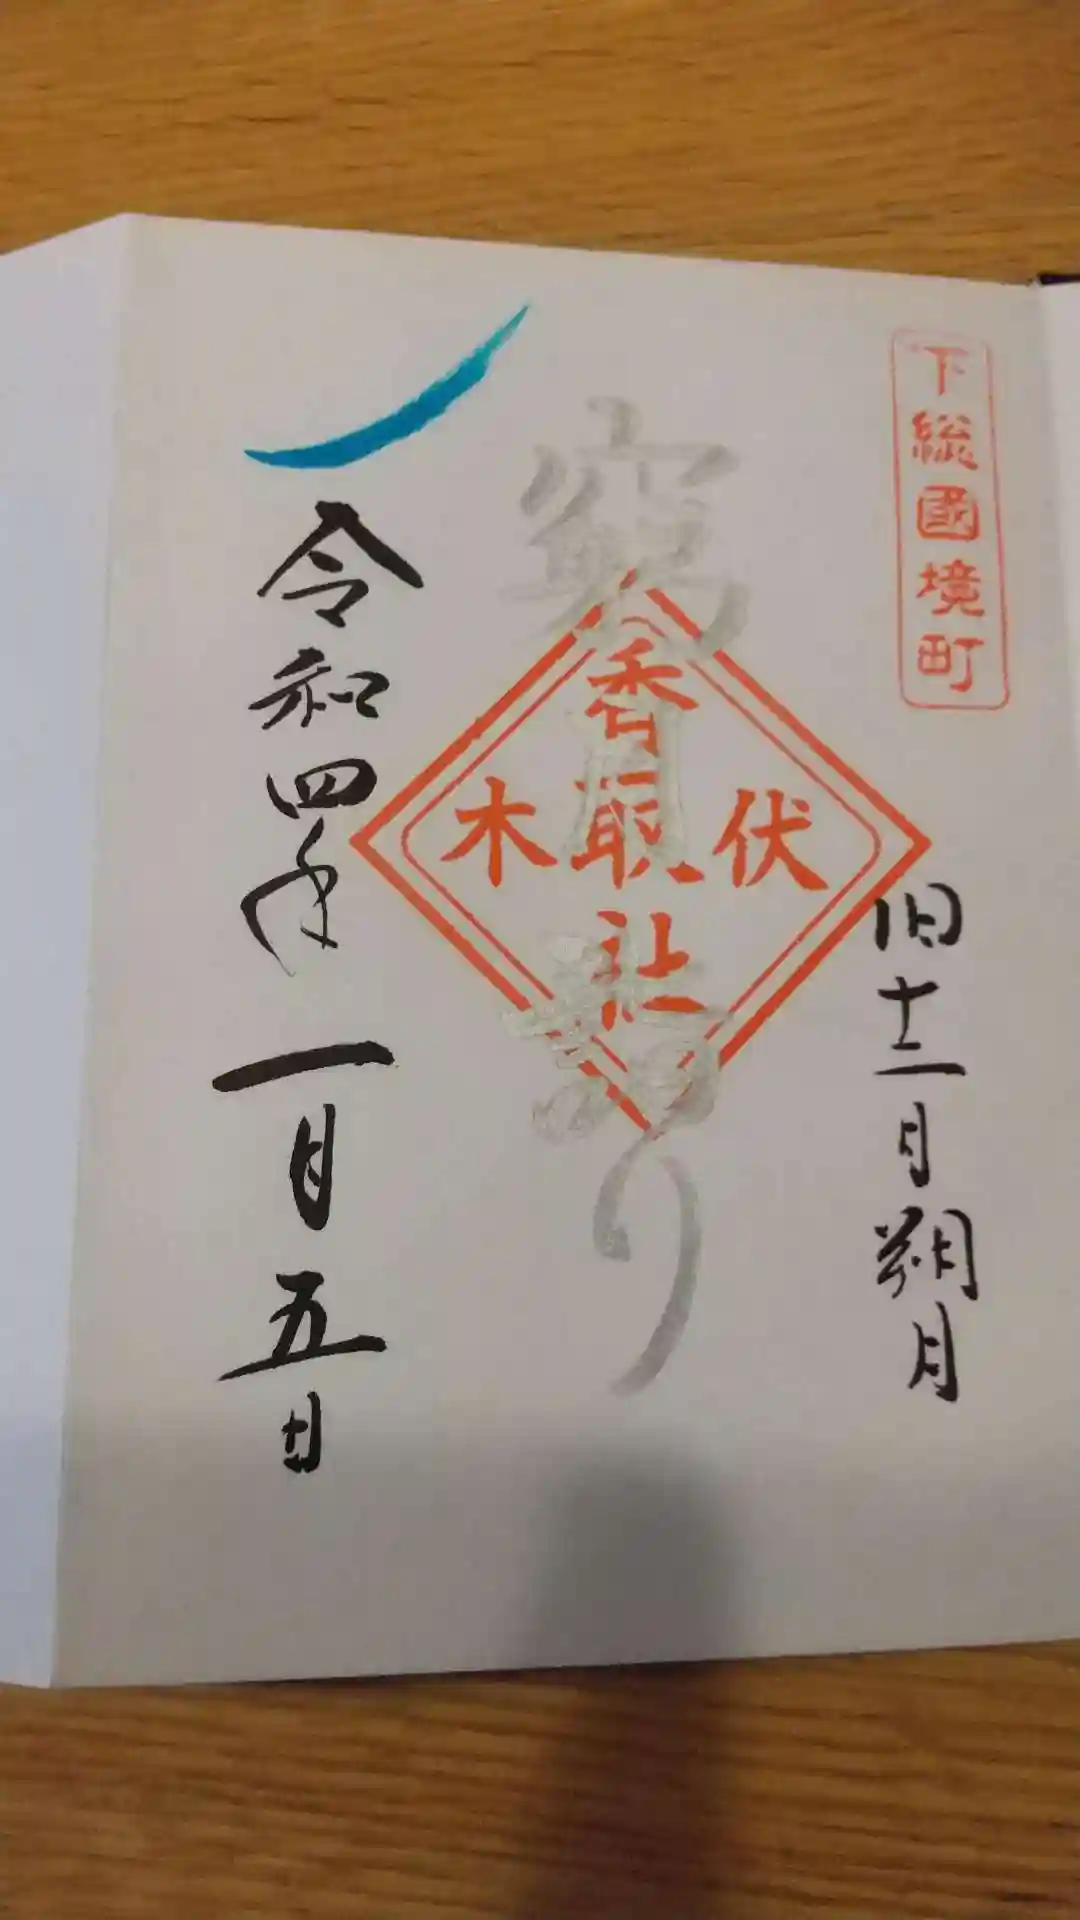 下総國境町
旧十二月朔月
窮月詣り
伏木
香取社
令和四年一月五日